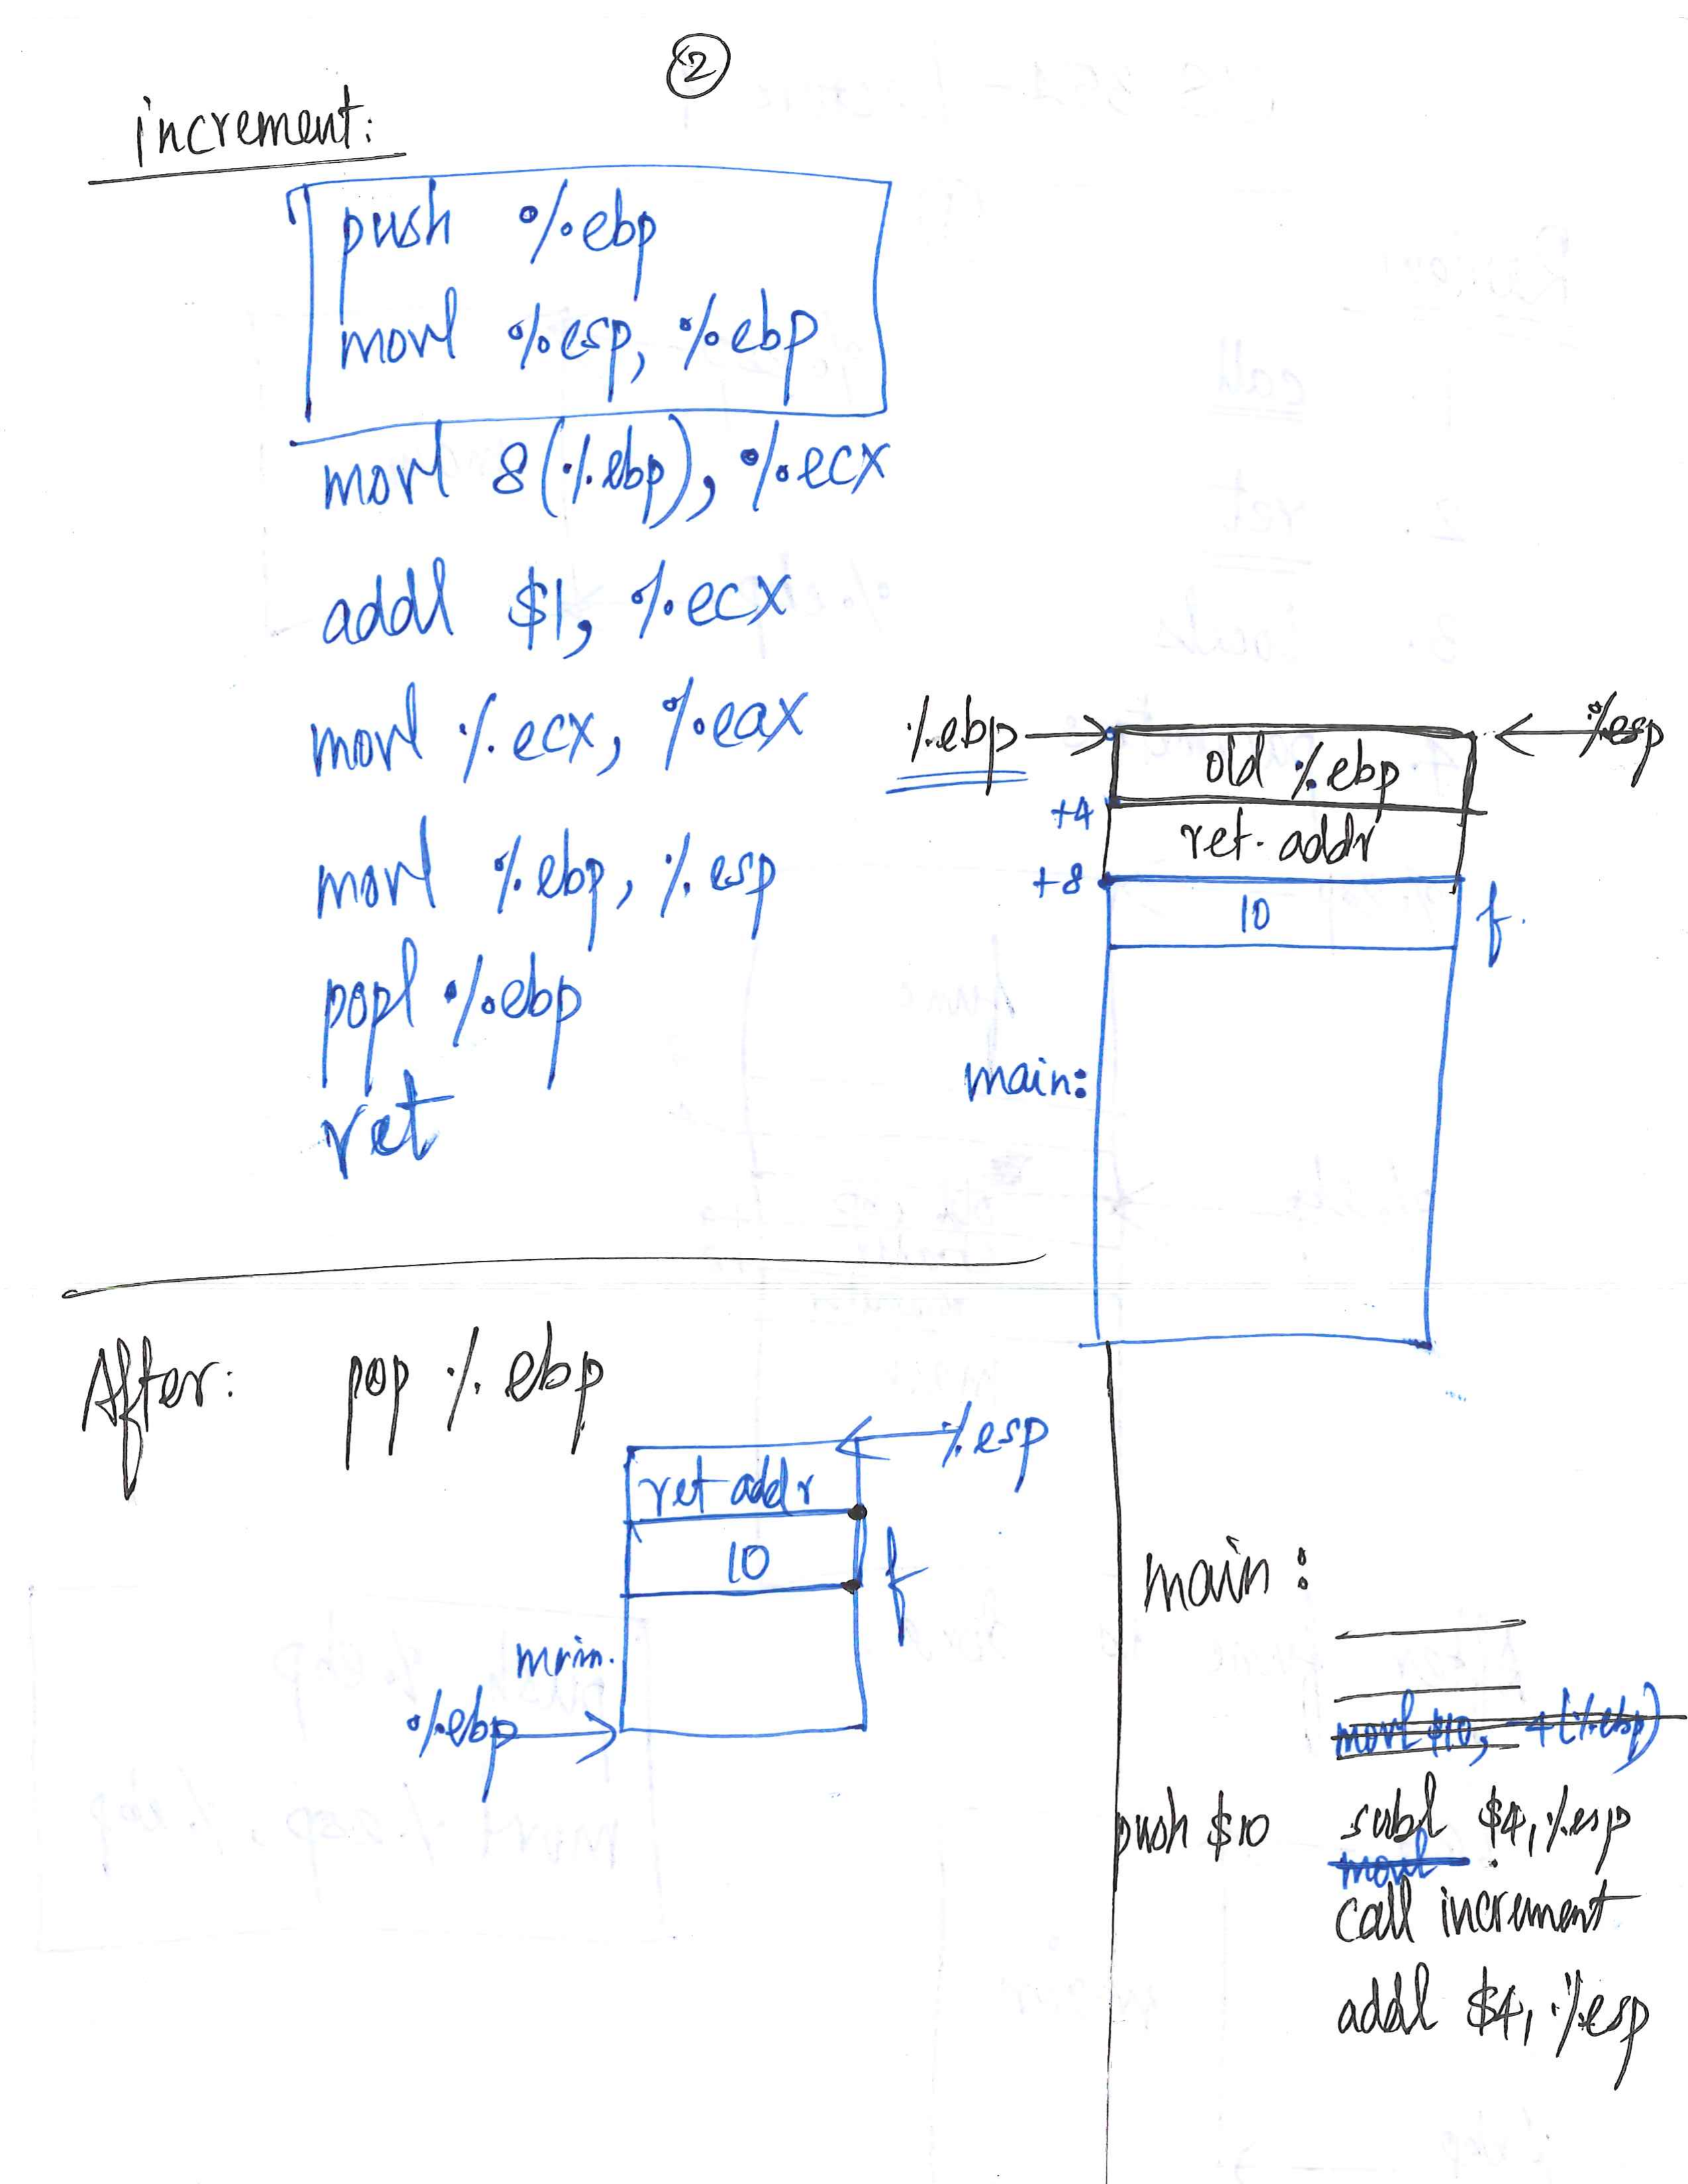 2
increment:
push %ebp
movl %esp, %ebp
movl 8(%ebp), %ecx
addl $1, %ecx
movl %ecx, %eax
movl %ebp, %esp
popl %ebp
ret
%ebp
old %ebp
%esp
+4
ret. addr
+8
10
f.
main:
After: pop %ebp
%esp
ret addr
10
f
main.
%ebp
main:
movl $10, -4(%ebp)
push $10 subl $4, %esp
movl
call increment
addl $4, %esp